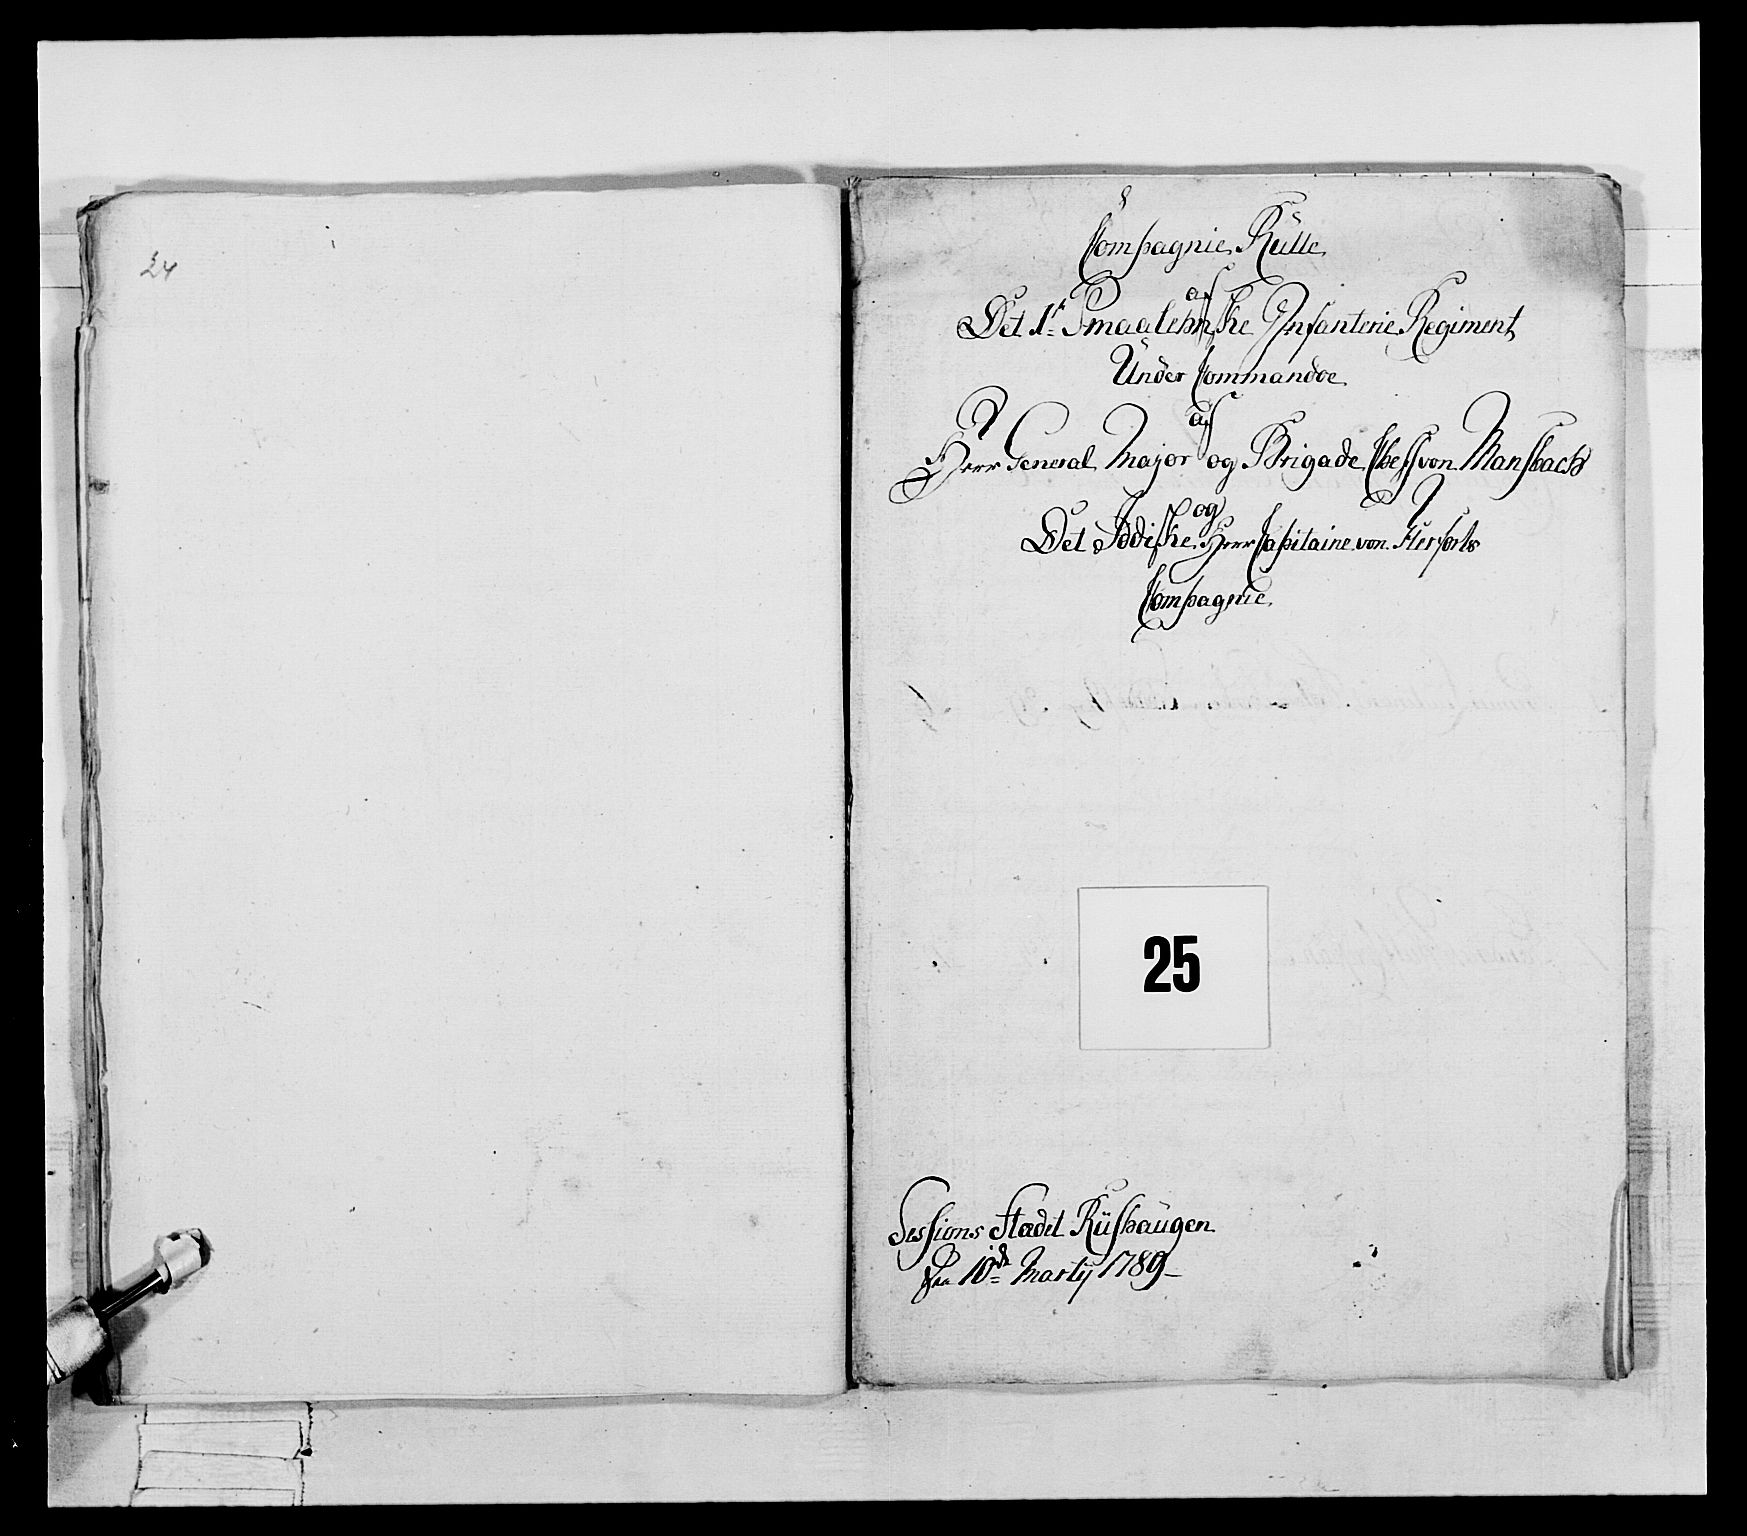 24
Compagnie Rulle
af
Det 1ste Smaalehnske Infanterie Regiment
Under Commandoe
af
Herr General Major og Brigade Chef von Mansbach
og
Det Iddiske Herr Capitaine von
Compagnie
25
Sessions Stædet Rüshaugen
den 10de Marty 1789